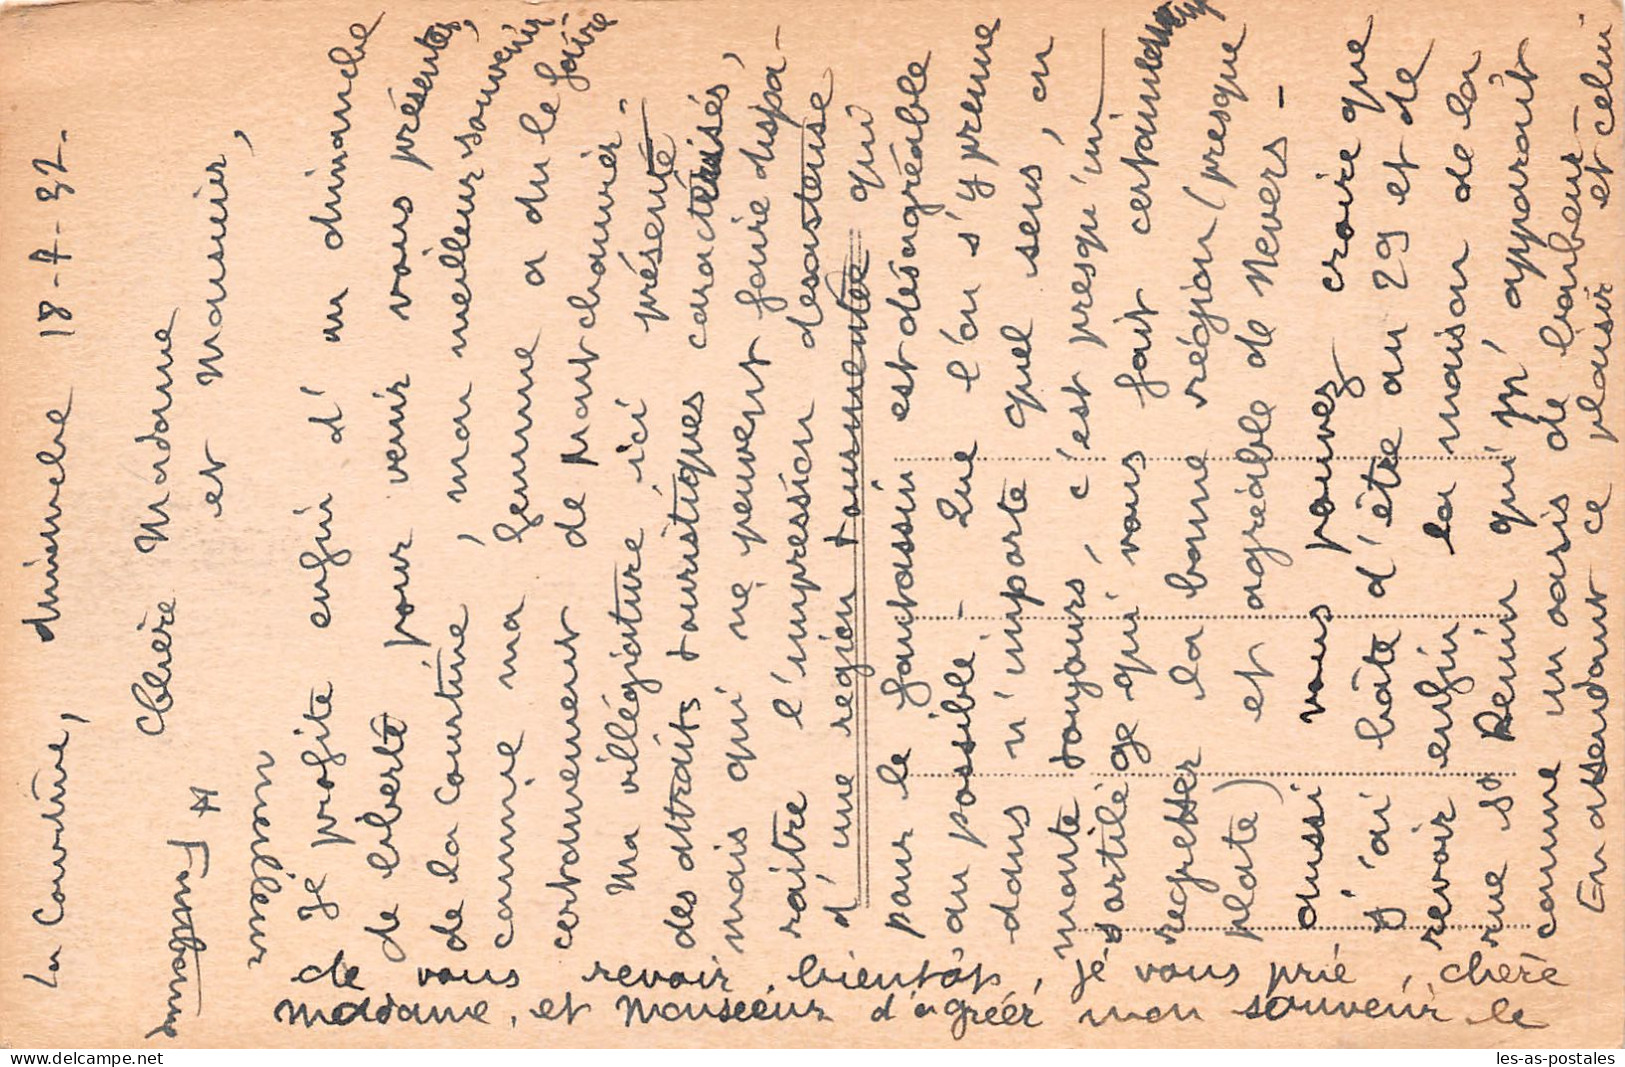 La Courtine, dimanche 18-7-32-
Chère Madame
et Monsieur,
Je profite enfin d'un dimanche
de liberté pour venir vous présenter,
de la Courtine, mon meilleur souvenir
comme ma femme a du le faire
certainement de Montchauvier-
Ma villégiature ici présente
des attraits touristiques caractérisés,
mais qui ne peuvent faire dispa-
raitre l'impression desasteuse
d'une region tourmentée qui
pour le fantassin est désagréable
au possible - Que l'on s'y prenne
dans n'importe quel sens, on
monte toujours, c'est presqu'un
sortilège qui vous fait certainement
regretter la bonne région (presque
plate) et agréable de Nevers -
aussi vous pouvez croire que
j'ai hâte d'être au 29 et de
revoir enfin la maison de la
rue St Remin qui m'apparait
comme un oasis de bonheur -
En attendant ce plaisir et celui
de vous revoir bientôt, je vous prie, chère
madame, et Monsieur d'agréer mon souvenir le
meilleur
les-as-postales